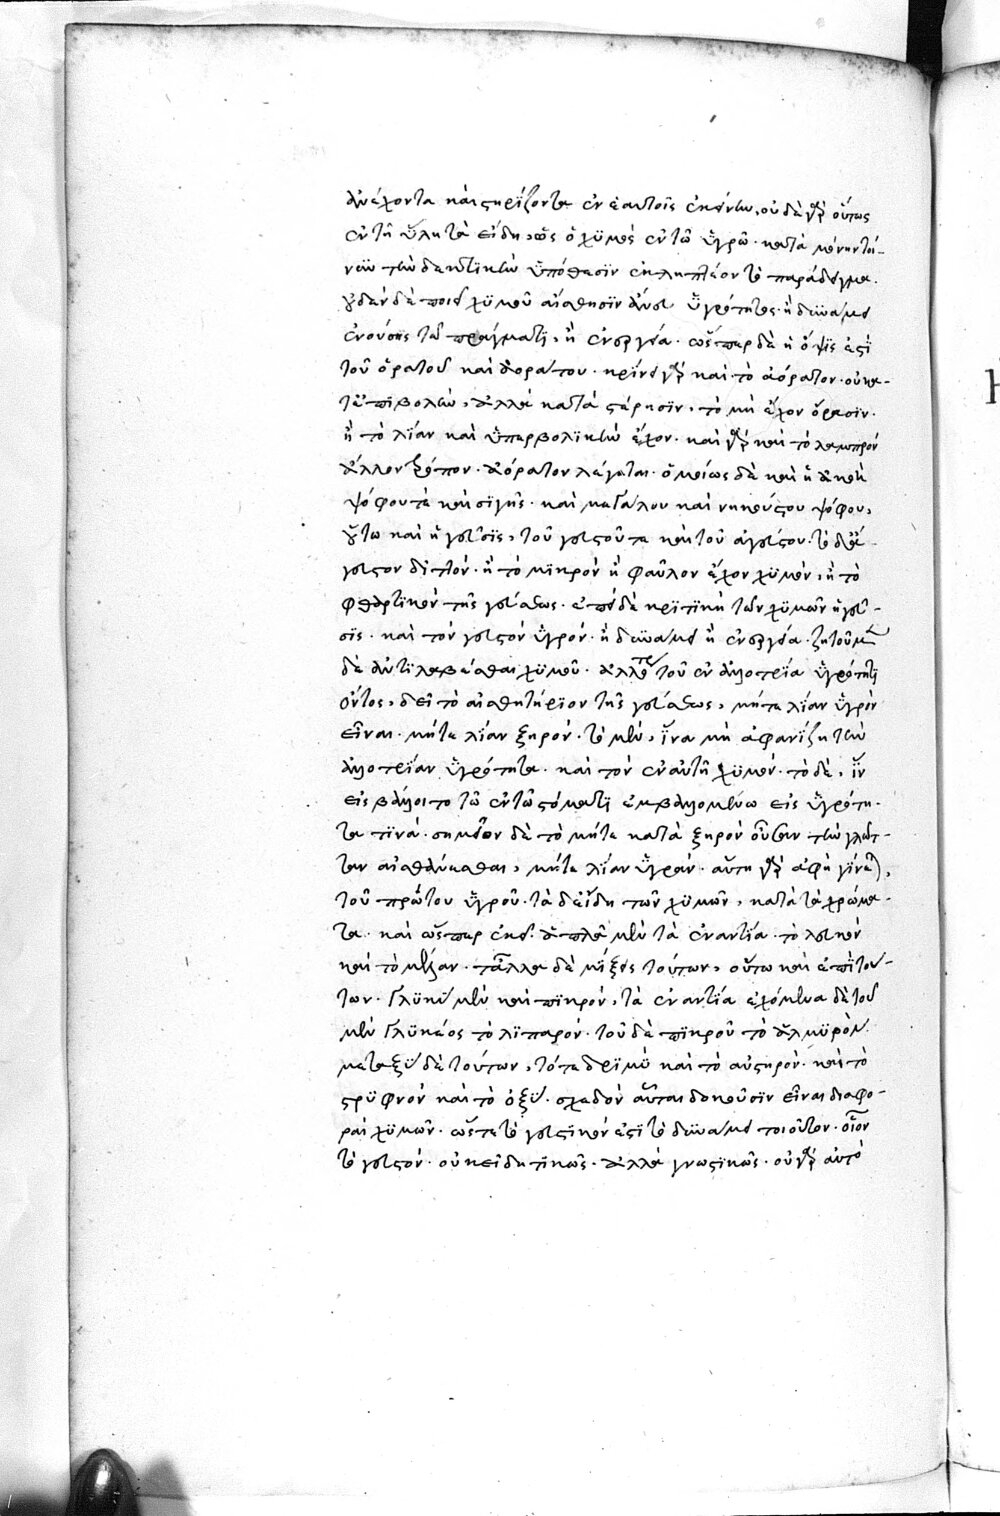 ἀνέχοντα καὶ στηρίζοντα ἐν ἑαυτοῖς ἐκεῖνον, οὐδὲ γὰρ οὕτως
ἐν τῇ ὕλῃ τὰ εἴδη, ὡς ὁ χυμὸς ἐν τῷ ὑγρῷ· κατὰ μόνην τοί-
νυν τὴν δεκτικὴν ὑπόθεσιν ἐκληπτέον τὸ παράδειγμα.
οὐδὲν δὲ ποιεῖ χυμοῦ αἴσθησιν ἄνευ ὑγρότητος· ἢ δυνάμει
ἐνούσης τῷ πράγματι, ἢ ἐνεργείᾳ· ὥσπερ δὲ ἡ ὄψις ἐστὶ
τοῦ ὁρατοῦ καὶ ἀοράτου· κρίνει γὰρ καὶ τὸ ἀόρατον· οὐ κα-
τ' ἐπιβολὴν, ἀλλὰ κατὰ στέρησιν, τὸ μὴ ἔχον ὅρασιν·
ἢ τὸ λίαν καὶ ὑπερβολικὴν ἔχον· καὶ γὰρ καὶ τὸ λαμπρὸν
ἄλλον τρόπον· ἀόρατον λέγεται· ὁμοίως δὲ καὶ ἡ ἀκοὴ
ψόφου τὲ καὶ σιγῆς· καὶ μεγάλου καὶ ἠκούστου ψόφου,
οὕτω καὶ ἡ γεῦσις, τοῦ γευστοῦ τὲ καὶ τοῦ ἀγεύστου· τὸ δὲ ἄ-
γευστον διττὸν· ἢ τὸ μικρὸν ἢ φαῦλον ἔχον χυμὸν, ἢ τὸ
φθαρτικὸν τῆς γεύσεως· ἐπεὶ δὲ κριτικὴ τῶν χυμῶν ἡ γεῦ-
σις· καὶ τὸν γευστὸν ὑγρὸν· ἢ δυνάμει ἢ ἐνεργείᾳ· ζητοῦμεν
δὲ ἀντιλαβέσθαι χυμοῦ· τοῦ ἐν ἀλλοτρίᾳ ὑγρότητι
ὄντος, δεῖ τὸ αἰσθητήριον τῆς γεύσεως, μήτε λίαν ὑγρὸν
εἶναι· μήτε λίαν ξηρόν· τὸ μὲν, ἵνα μὴ ἀφανίζῃ τὴν
ἀλλοτρίαν ὑγρότητα· καὶ τὸν ἐν αὐτῇ χυμὸν· τὸ δὲ, ἵν'
εἰσβάλλοι τὸ τῷ ἐν τῷ στόματι ἐμβαλλομένῳ εἰς ὑγρότη-
τα τινά· σημεῖον δὲ τὸ μήτε κατὰ ξηρὸν οὖσαν τὴν γλῶτ-
ταν αἰσθάνεσθαι, μήτε λίαν ὑγράν· αὕτη γὰρ ἀφὴ γίνεται,
τοῦ πρώτου ὑγροῦ· τὰ δ' εἴδη τῶν χυμῶν, κατὰ τὰ χρώμα-
τα· καὶ ὥσπερ ἐκεῖ· ἁπλᾶ μὲν τὰ ἐναντία· τὸ λευκὸν
καὶ τὸ μέλαν· τἄλλα δὲ μίξεις τούτων, οὕτω καὶ ἐπὶ τού-
των· γλυκὺ μὲν καὶ πικρὸν, τὰ ἐναντία ἐχόμενα δὲ τοῦ
μὲν γλυκέος τὸ λιπαρὸν· τοῦ δὲ πικροῦ τὸ ἁλμυρὸν
μεταξὺ δὲ τούτων, τό τε δριμὺ καὶ τὸ αὐστηρὸν· καὶ τὸ
στρυφνὸν καὶ τὸ ὀξὺ· σχεδὸν αὗται δοκοῦσιν εἶναι διαφο-
ραὶ χυμῶν· ὥστε τὸ γευστικὸν ἐστὶ τὸ δυνάμει τοιοῦτον· οἷον
τὸ γευστὸν· οὐκ εἰδητικῶς· ἀλλὰ γνωστικῶς· οὐ γὰρ αὐτὸ